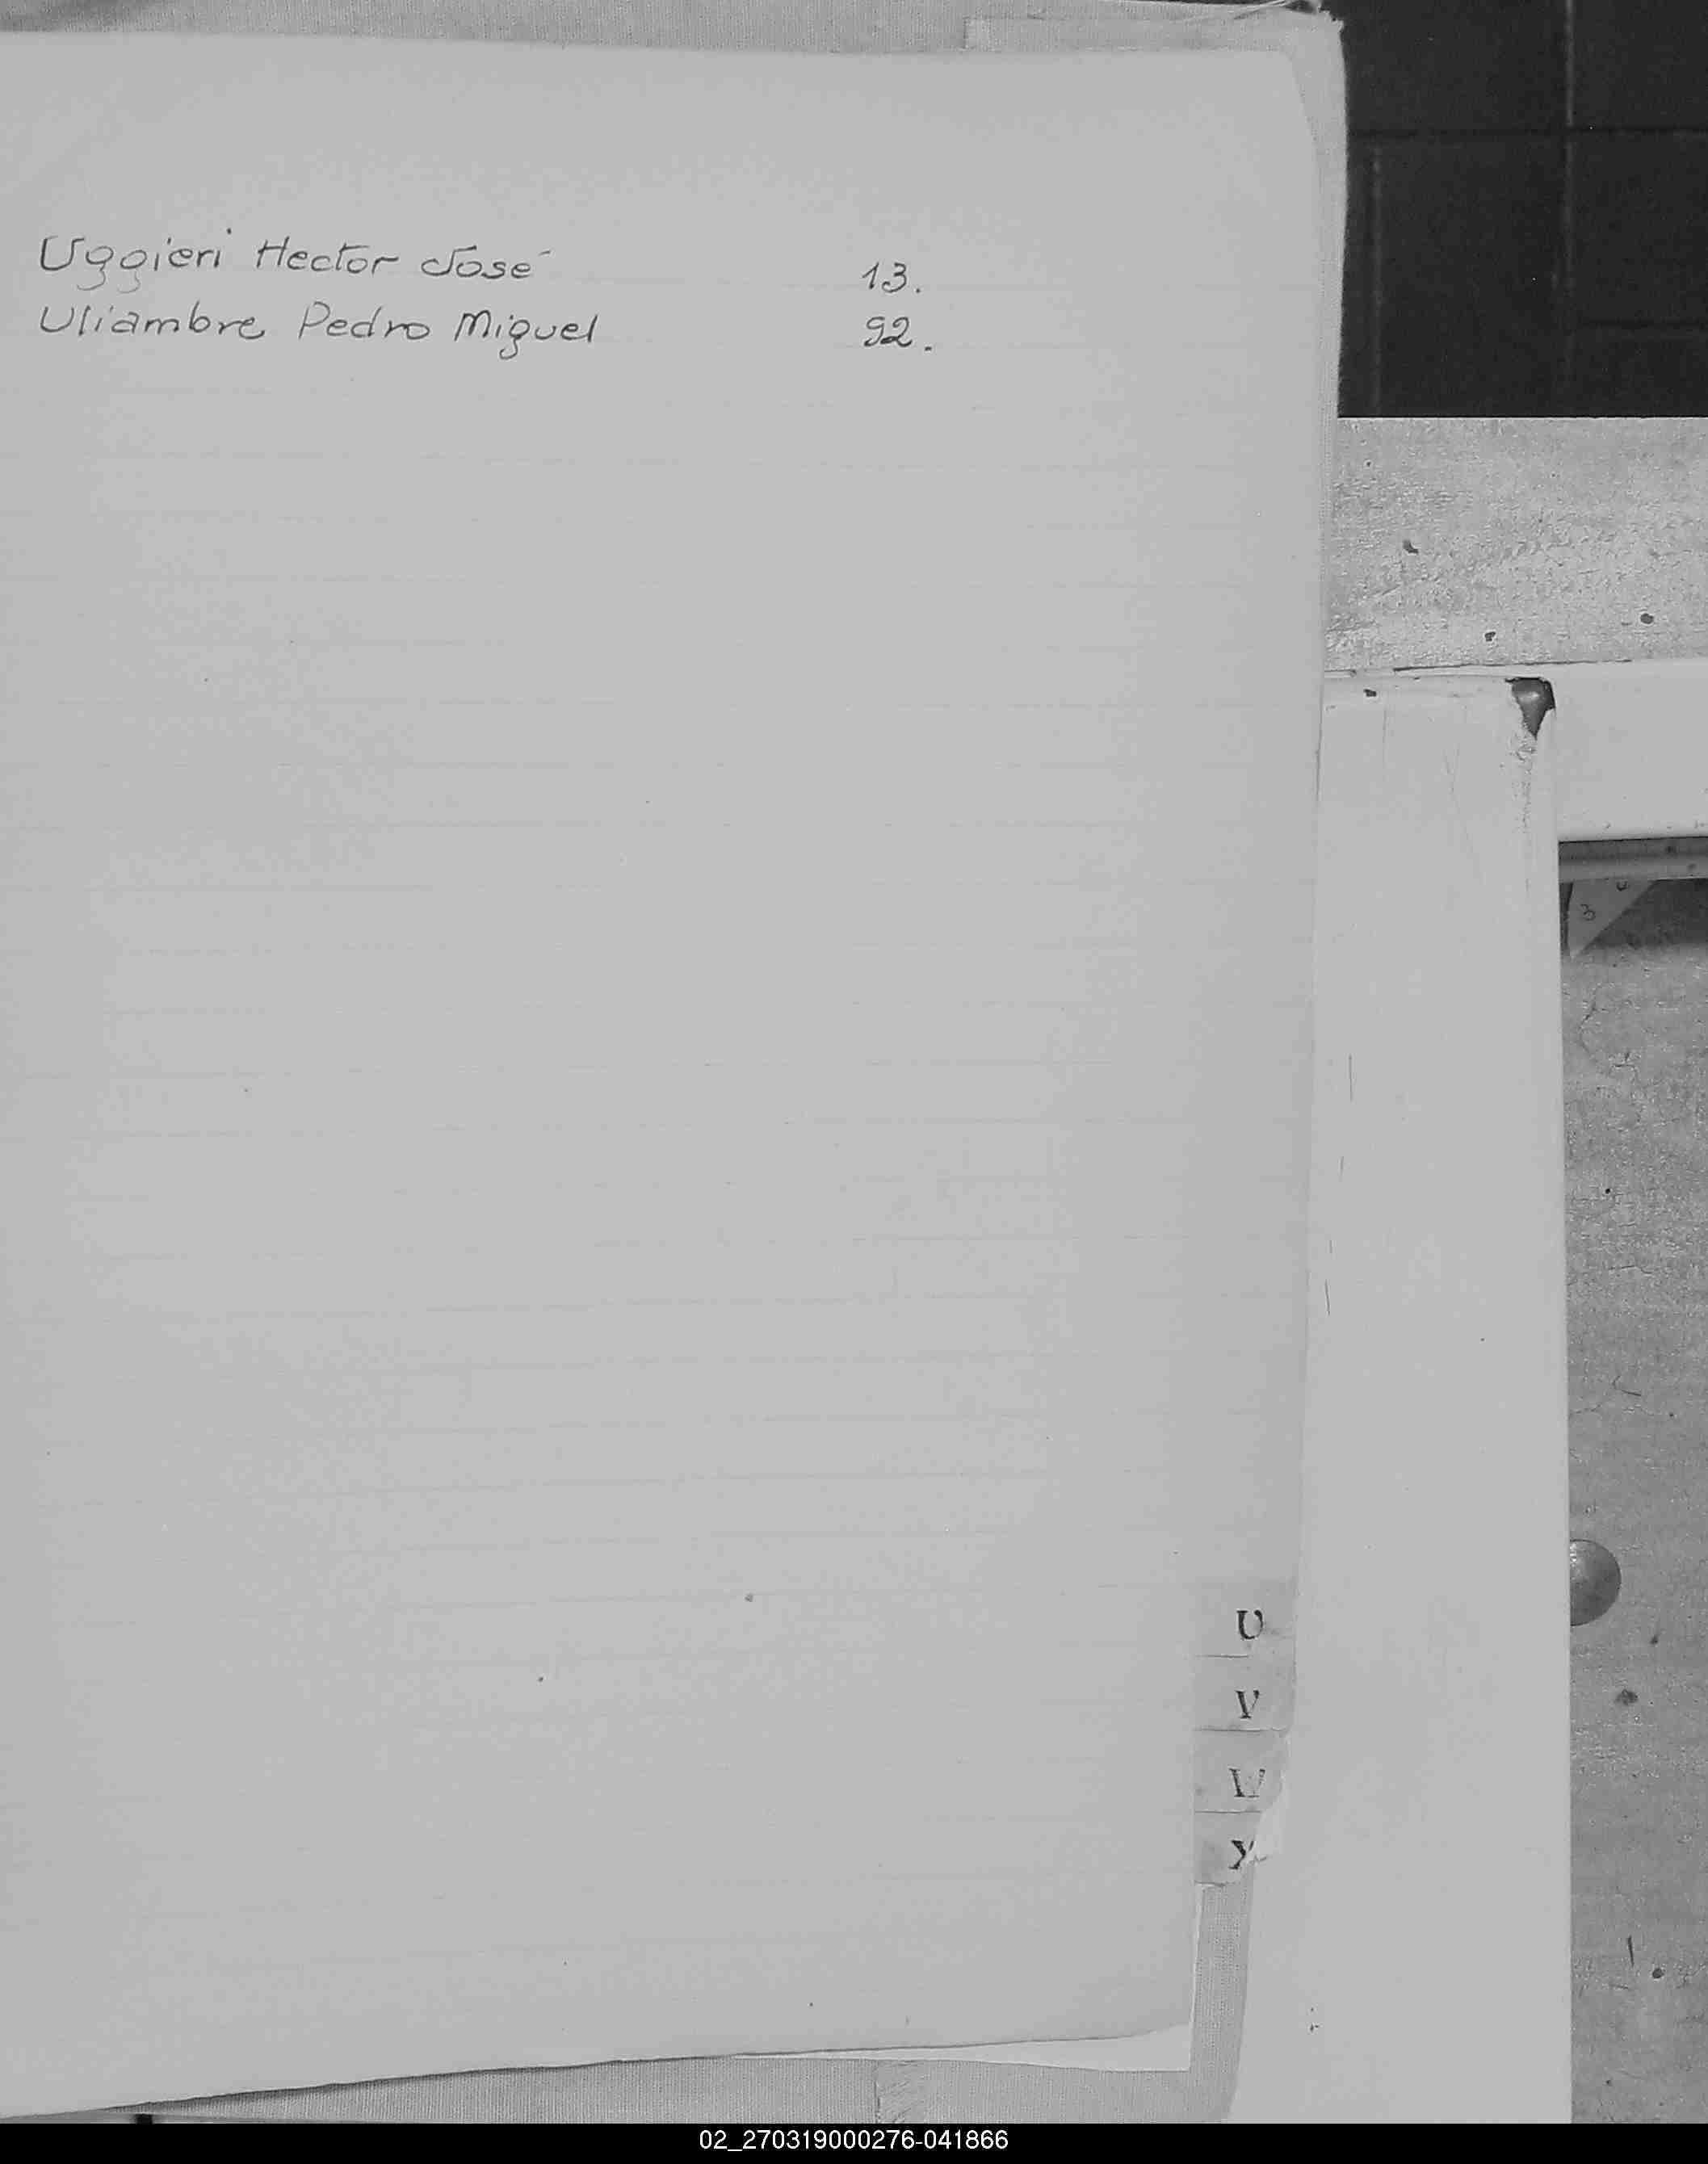 Uggieri Hector José 13.
Uliambre Pedro Miguel 92.
U
V
W
X
3
02_270319000276-041866